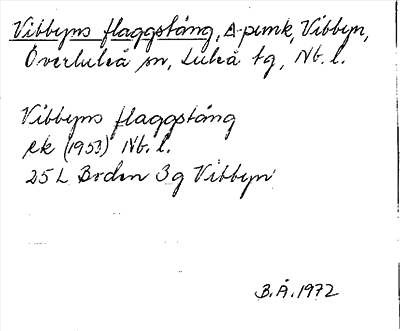 Vibbyns flaggstång, Δ-punk, Vibbyn,
Överluleå sn, Luleå tg, Nb. l.
Vibbyns flaggstång
ek (1953) Nb. l.
25 L Boden 3g Vibbyn
B.Å. 1972